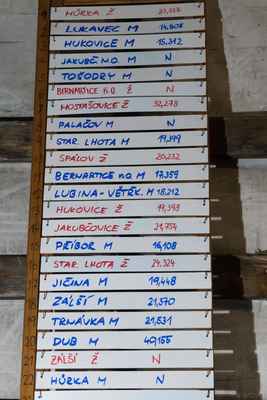 HŮRKA Ž
LUKAVEC M
HUKOVICE M 15,312
JAKUBČ N.O. M N
TOŠODRY M N
BERNARTICE N.O. Ž N
MOSTAŠOVICE Ž 32,278
PALAČOV M N
STAR. LHOTA M 19,949
SPÁLOV Ž 20,232
BERNARTICE N.O. M 17,359
LUBINA-VĚTŘK. M 18,212
HUKOVICE Ž 17,393
JAKUBČOVICE Ž 21,734
PŘÍBOR M 16,108
STAR. LHOTA Ž 24,324
JIČINA M 19,448
ZÁLŠÍ M 21,570
TRNÁVKA M 21,531
DUB M 40,155
ZÁLŠÍ Ž N
HŮRKA M N